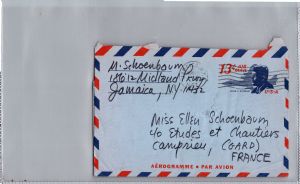 M. Schoenbaum
Midland Pkwy
Jamaica, NY
13¢ AIR MAIL
U·S·A
Miss Ellen Schoenbaum
c/o Etudes et Chantiers
Camprieu, (GARD)
FRANCE
AÉROGRAMME • PAR AVION